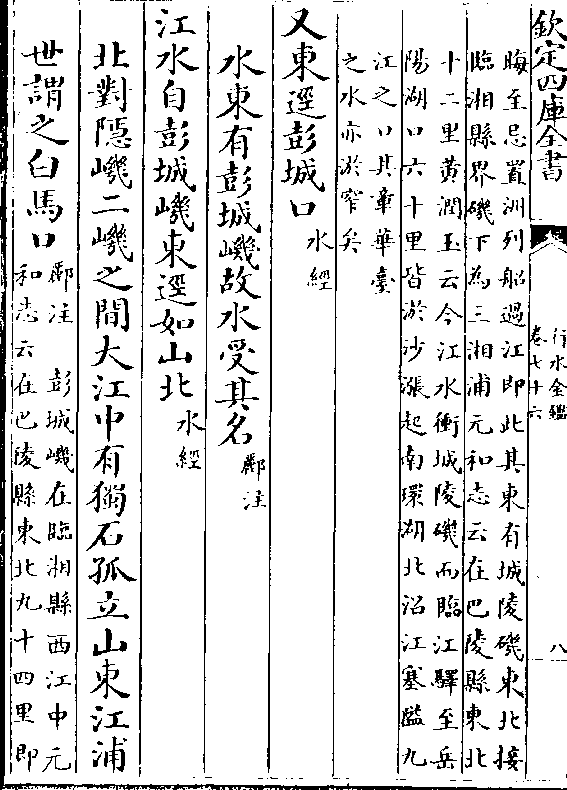 欽定四庫全書
行水金鑑
卷七十六
八
晦至忌置洲列船過江即此其東有城陵磯東北接
臨湘縣界磯下為三湘浦元和志云在巴陵縣東北
十二里黄潤玉云今江水衝城陵磯而臨江驛至岳
陽湖口六十里皆淤沙漲起南環湖北沿江塞隘九
江之口其章華臺
之水亦淤窄矣
又東逕彭城口水經
水東有彭城㠑故水受其名酈注
江水自彭城㠑東逕如山北水經
北對隱㠑二㠑之間大江中有獨石孤立山東江浦
世謂之白馬口酈注 彭城㠑在臨湘縣西江中元
和志云在巴陵縣東北九十四里即